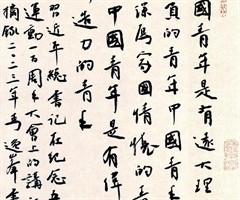 國青年是有遠大理
負的青年中國青
深厚家國情懷的青
中國青年是有偉
造力的青年
習近平總書記在紀念五
運動一百周年大會上的講
摘錄